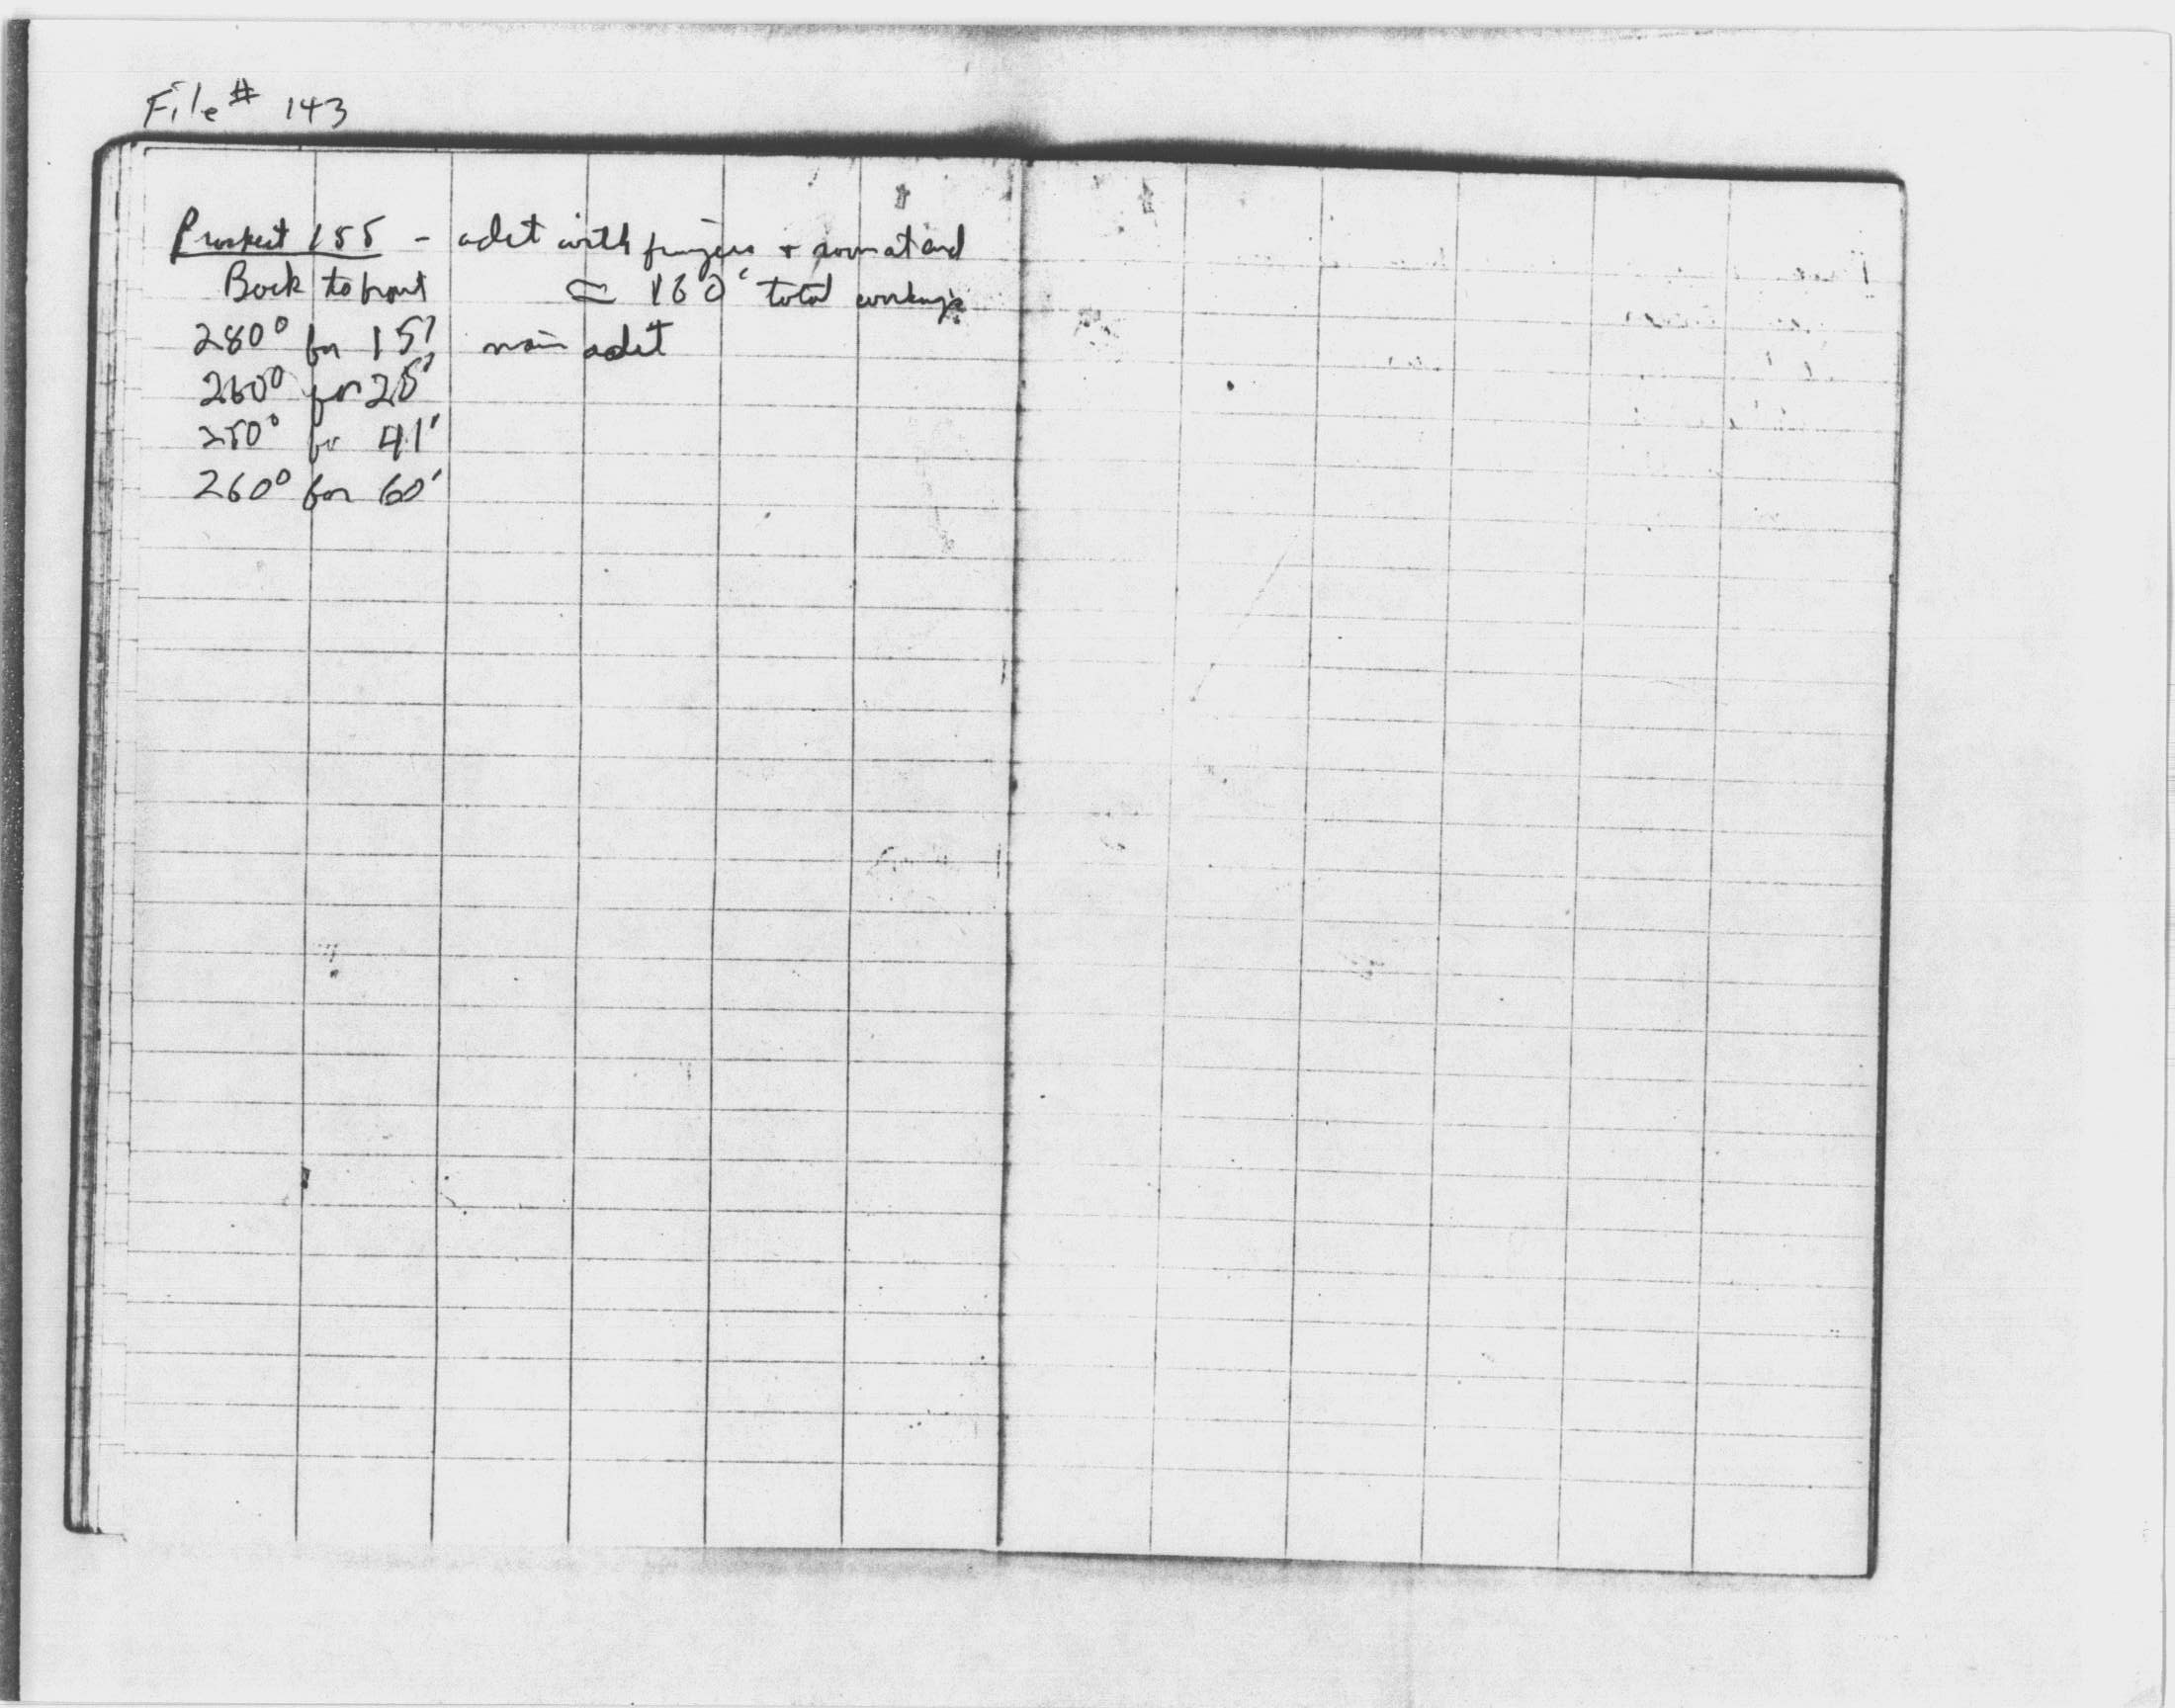 File # 143
Prospect 155 - adit with fingers + room at end
Back to front ≈ 160' total workings
280° for 15' main adit
260° for 25'
250° for 41'
260° for 60'